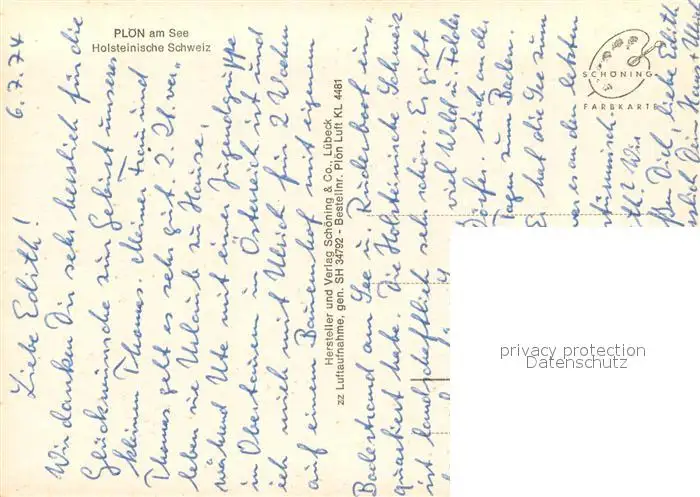 PLÖN am See
Holsteinische Schweiz
SCHÖNING
FARBKARTE
Hersteller und Verlag Schöning & Co., Lübeck
zz Luftaufnahme, gen. SH 34792 - Bestellnr. Plön Luft KL 4481
6.7.74
Liebe Edith!
Wir danken Dir sehr herzlich für die
Glückwünsche zur Geburt unseres
kleinen Thomas. Meiner Frau und
Thomas geht es sehr gut. Z. Zt. ver-
leben sie Urlaub zu Hause,
während Ute mit einer Jugendgruppe
in Obertauern in Österreich ist und
ich mich mit Ulrich für 2 Wochen
auf einem Bauernhof mit eigenem
Badestrand am See u. Ruderboot ein-
quartiert habe. Die Holsteinische Schweiz
ist landschaftlich sehr schön. Es gibt
viel Wald u. Felder
Dörfer. Auch an der
Tagen zum Baden.
Er hat die See zum
war es an den letzten
stimmisch-
? Wir
Dich, liebe Edith
privacy protection
Datenschutz